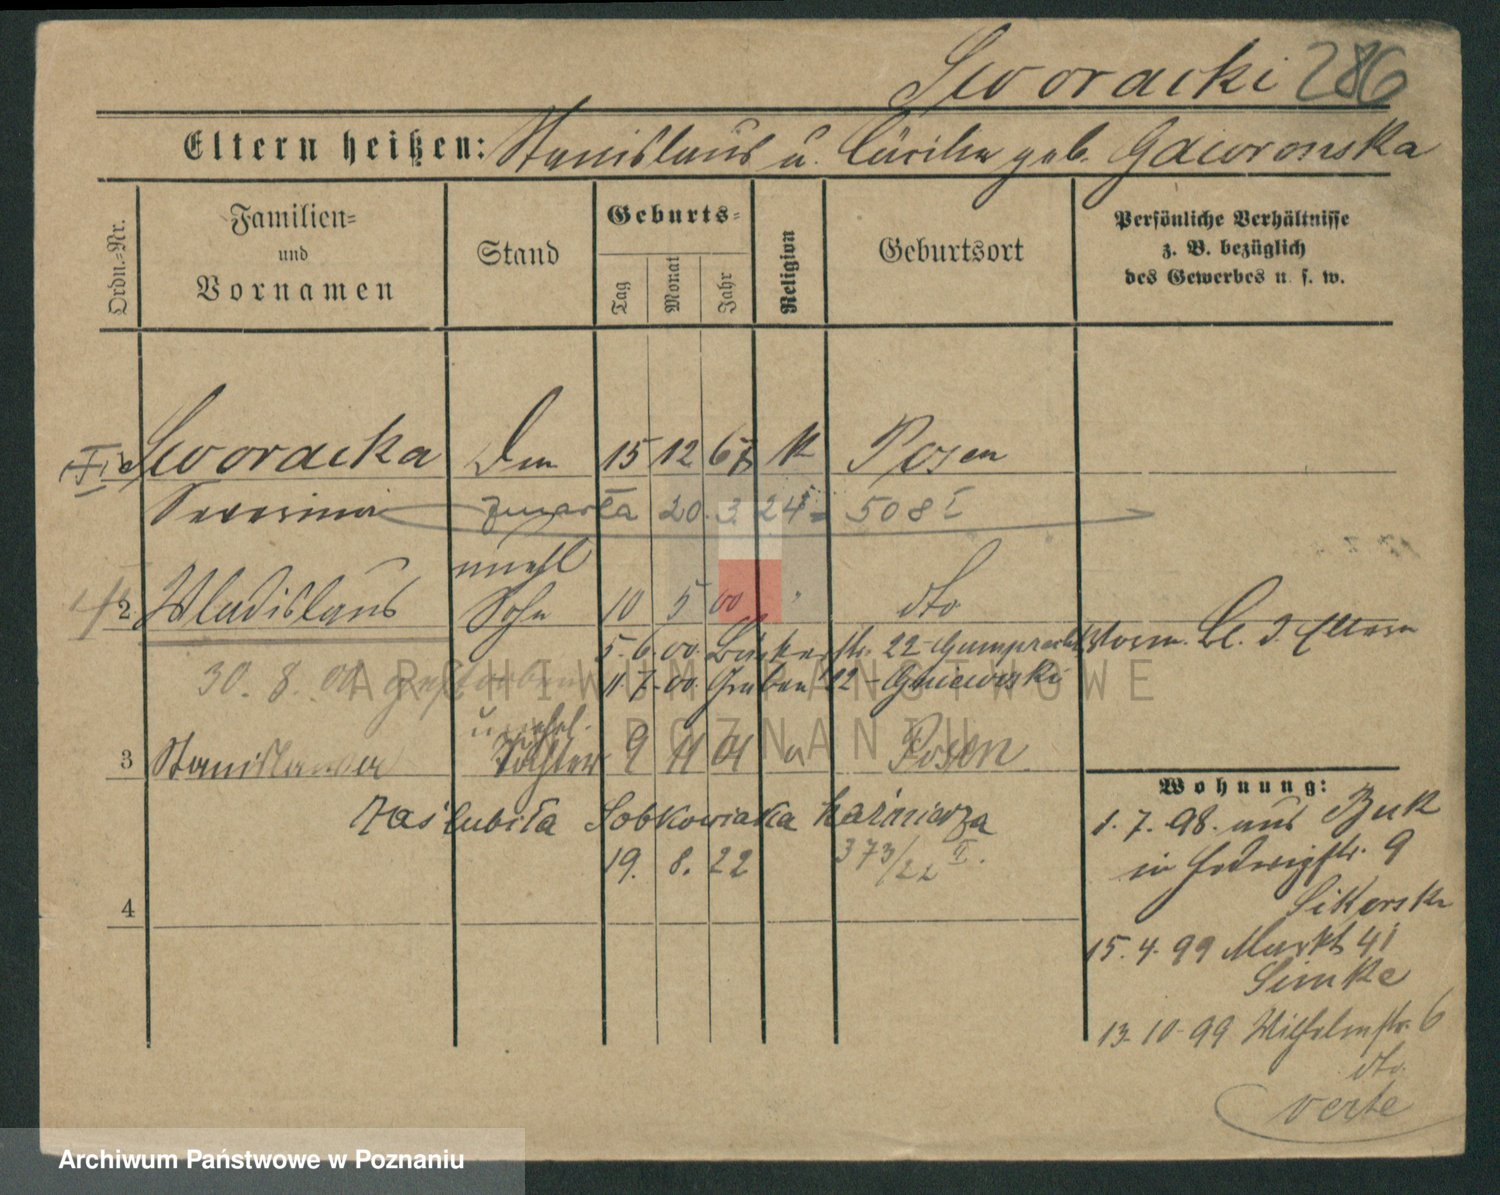 Sworacki 286
Eltern heißen: Stanislaus u. Cäcilia geb. Gaworonska
Ordn.-Nr.
Familien-
und
Vornamen
Stand
Geburts-
Tag
Monat
Jahr
Religion
Geburtsort
Persönliche Verhältnisse
z. B. bezüglich
des Gewerbes u. s. w.
Sworacka 15 12 67 K Posen
Severina zmarła 20. 3. 24 508 I
unehl
2 Wladislaus Sohn 10 5 00 " dto
5. 6. 00. Bäckerstr. 22 - Gumprecht d. Eltern
30. 8. 00 gestorben 11. 7. 00. Graben 22 - Gniewoski
unehl.
3 Stanislawa Tochter 9 11 01 Posen
zaślubiła Sobkowiaka Kaźmierza
19. 8. 22 373/22 I.
4
Wohnung:
1. 7. 98. aus Buk
in Hedwigstr. 9
Sikorska
15. 4. 99 Markt 41
Simke
13. 10. 99 Wilhelmstr. 6
dto.
verte
ARCHIWUM PAŃSTWOWE
POZNANIU
Archiwum Państwowe w Poznaniu